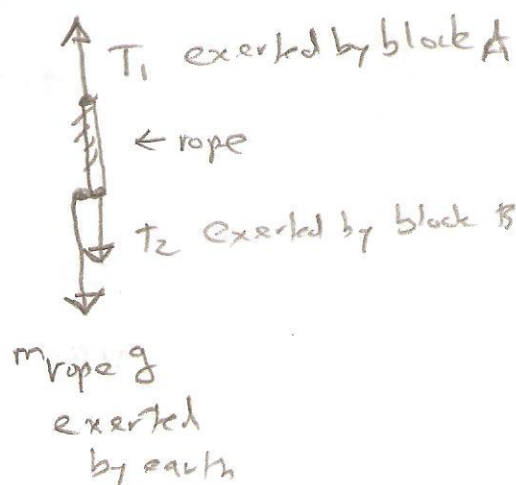 T1 exerted by block A
← rope
T2 exerted by block B
mrope g
exerted
by earth